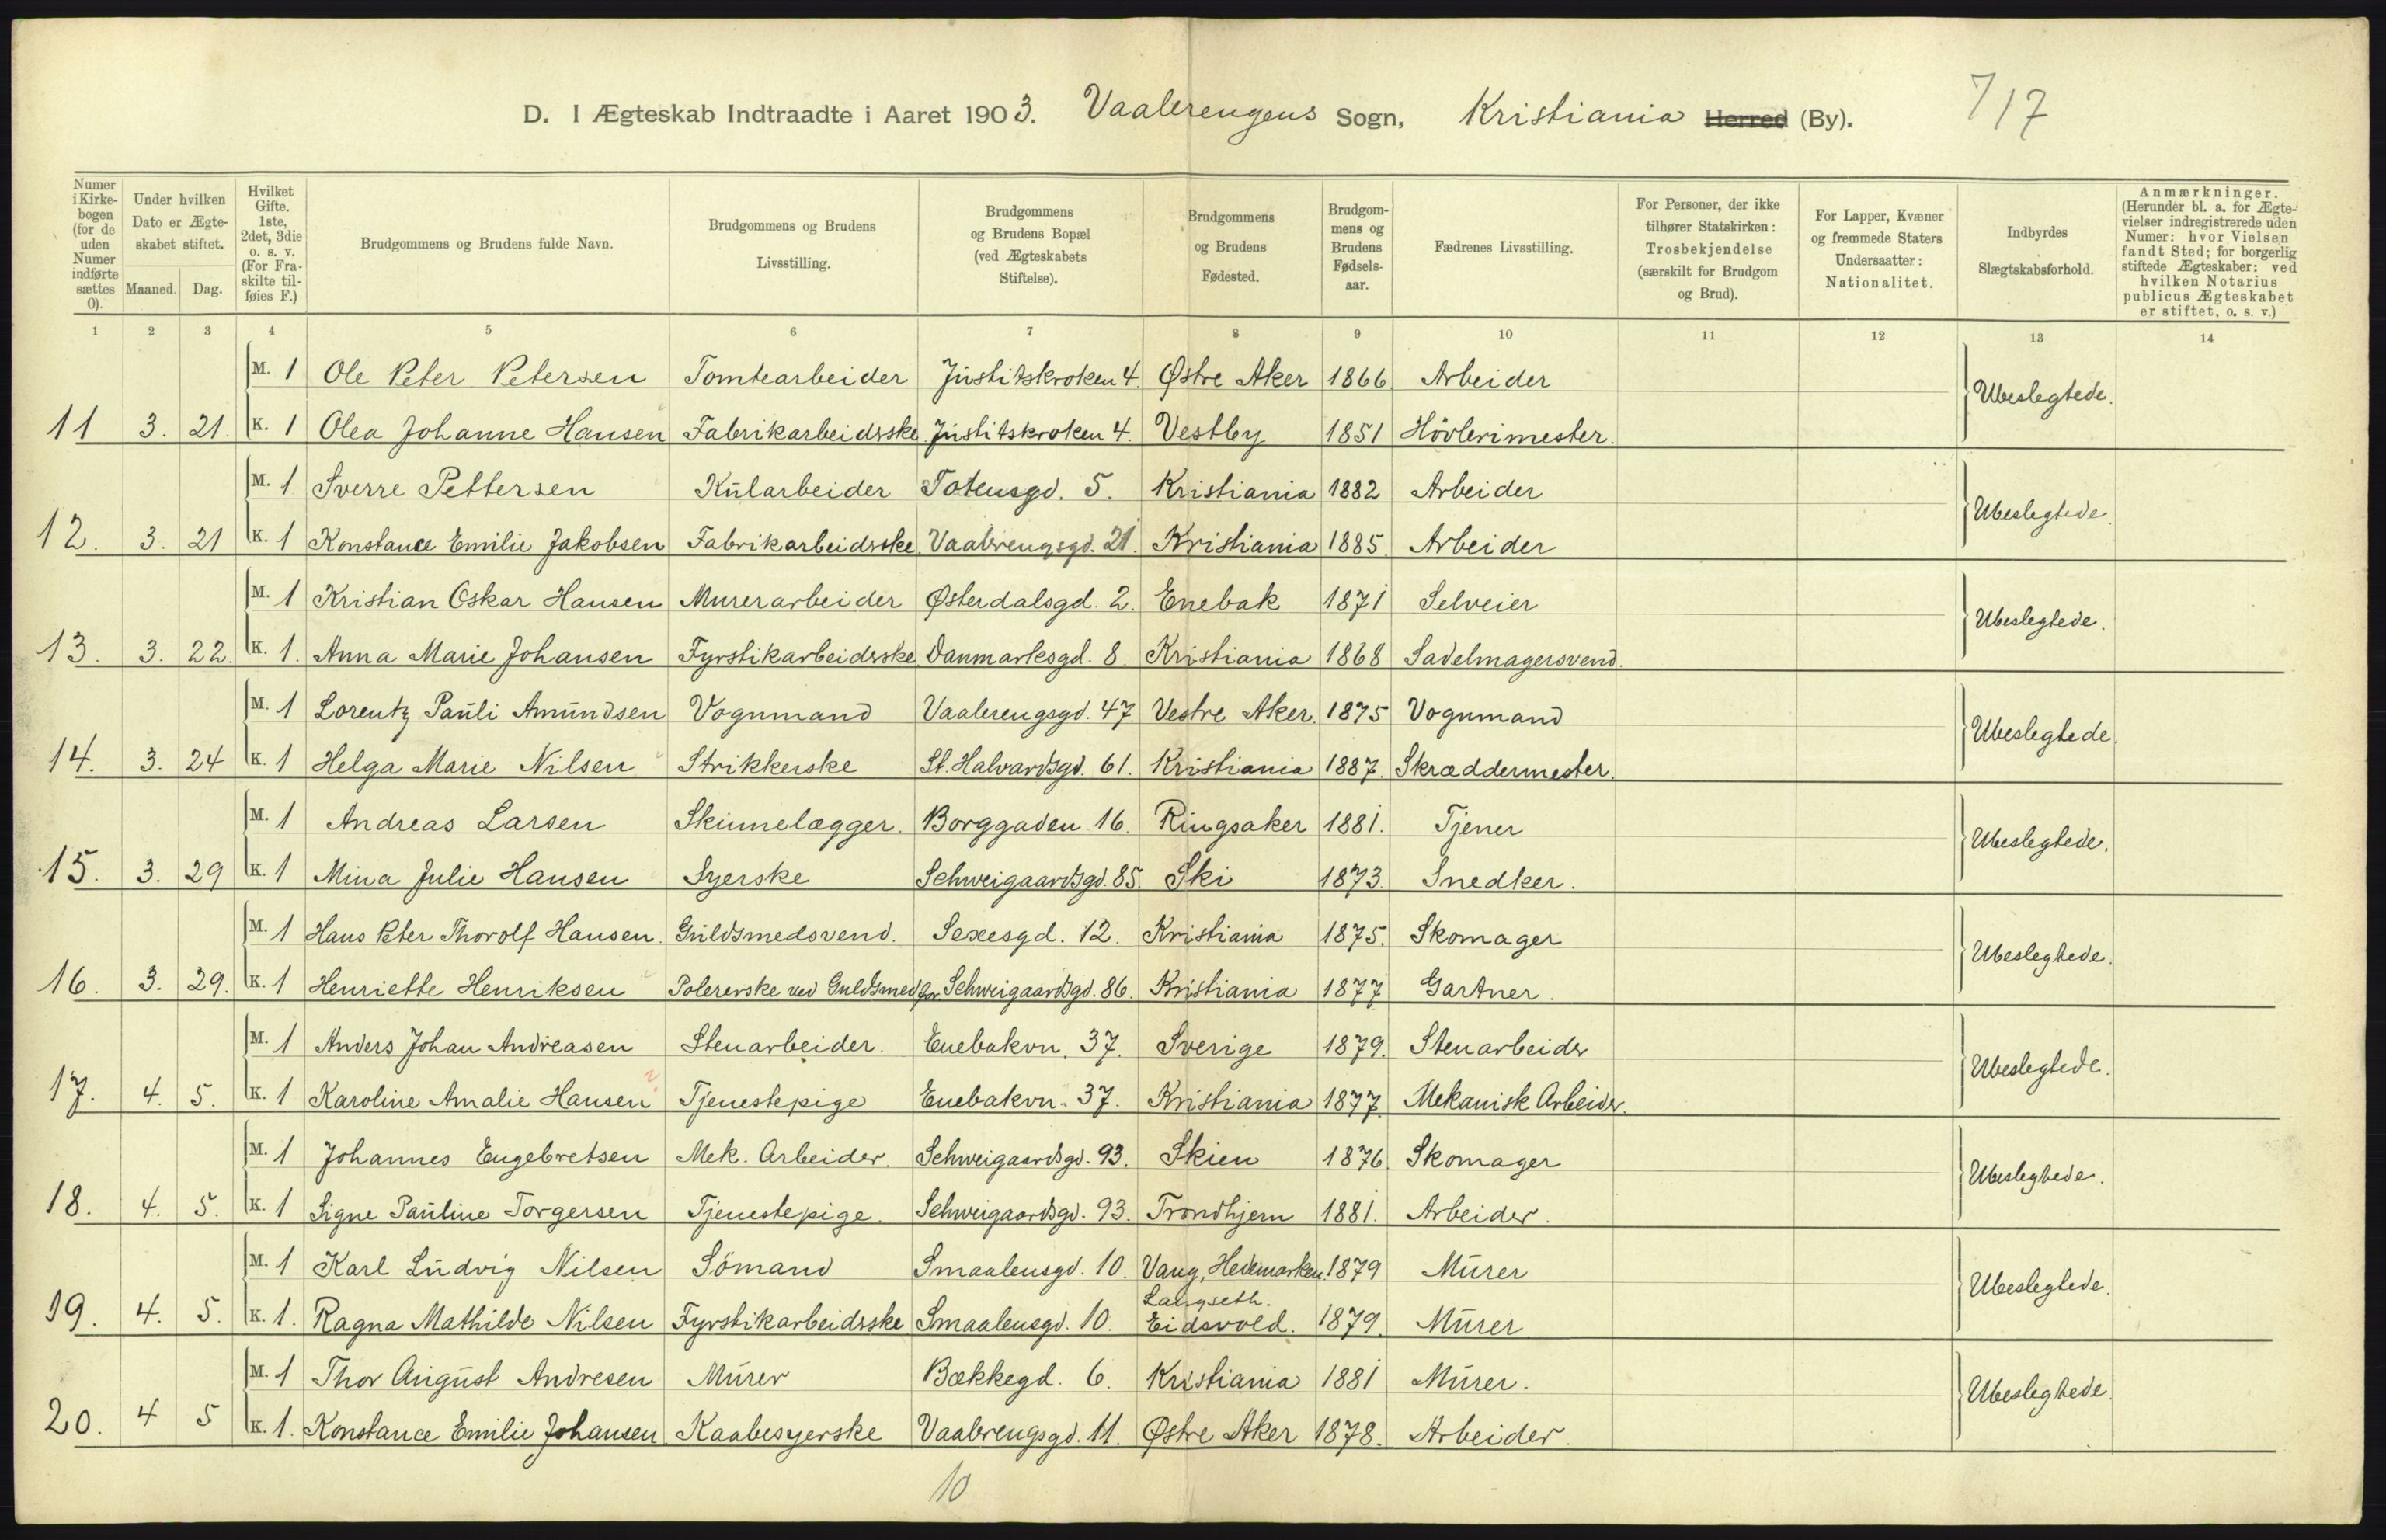 D. I Ægteskab Indtraadte i Aaret 1903. Vaalerengens Sogn, Kristiania Herred (By). 7/17
Numer i Kirkebogen (for de uden Numer indførte sættes 0).
Under hvilken Dato er Ægteskabet stiftet.
Maaned. Dag.
Hvilket Gifte. 1ste, 2det, 3die o. s. v. (For Fraskilte tilføies F.)
Brudgommens og Brudens fulde Navn.
Brudgommens og Brudens Livsstilling.
Brudgommens og Brudens Bopæl (ved Ægteskabets Stiftelse).
Brudgommens og Brudens Fødested.
Brudgommens og Brudens Fødselsaar.
Fædrenes Livsstilling.
For Personer, der ikke tilhører Statskirken: Trosbekjendelse (særskilt for Brudgom og Brud).
For Lapper, Kvæner og fremmede Staters Undersaatter: Nationalitet.
Indbyrdes Slægtskabsforhold.
Anmærkninger. (Herunder bl. a. for Ægtevielser indregistrerede uden Numer: hvor Vielsen fandt Sted; for borgerlig stiftede Ægteskaber: ved hvilken Notarius publicus Ægteskabet er stiftet, o. s. v.)
1 2 3 4 5 6 7 8 9 10 11 12 13 14
M. 1 Ole Peter Petersen Tomtearbeider Justitskroken 4. Østre Aker 1866 Arbeider Ubeslegtede.
11 3. 21. K. 1 Olea Johanne Hansen Fabrikarbeidsske Justitskroken 4. Vestby 1851 Hövlerimester.
M. 1 Sverre Pettersen Kularbeider Totensgd. 5. Kristiania 1882 Arbeider Ubeslegtede.
12. 3. 21 K. 1 Konstance Emilie Jakobsen Fabrikarbeidsske Vaalerengsgd. 21. Kristiania 1885. Arbeider
M. 1 Kristian Oskar Hansen Murerarbeider Østerdalsgd. 2. Enebak 1871 Selveier Ubeslegtede.
13. 3. 22. K. 1. Anna Marie Johansen Fyrstikarbeidsske Danmarksgd. 8. Kristiania 1868 Sadelmagersvend.
M. 1 Lorentz Pauli Amundsen Vognmand Vaalerengsgd. 47 Vestre Aker. 1875 Vognmand Ubeslegtede.
14. 3. 24 K. 1 Helga Marie Nilsen Strikkerske St. Halvardsgd. 61. Kristiania 1887. Skræddermester.
M. 1 Andreas Larsen Skinnelægger. Borggaden 16. Ringsaker 1881. Tjener Ubeslegtede.
15. 3. 29 K. 1 Mina Julie Hansen Syerske Schweigaardsgd. 85. Ski 1873. Snedker.
M. 1 Hans Peter Thorolf Hansen. Guldsmedsvend. Sexesgd. 12. Kristiania 1875. Skomager Ubeslegtede.
16. 3. 29. K. 1 Henriette Henriksen Polererske ved Guldsmedfor. Schweigaardsgd. 86. Kristiania 1877 Gartner.
M. 1 Anders Johan Andreasen Stenarbeider. Enebakvn. 37. Sverige 1879. Stenarbeider Ubeslegtede.
17. 4. 5. K. 1 Karoline Amalie Hansen ? Tjenestepige Enebakvn. 37. Kristiania 1877. Mekanisk Arbeider.
M. 1 Johannes Engebretsen Mek. Arbeider. Schweigaardsgd. 93. Skien 1876 Skomager Ubeslegtede.
18. 4. 5. K. 1 Signe Pauline Torgersen Tjenestepige. Schweigaardsgd. 93. Trondhjem 1881. Arbeider.
M. 1 Karl Ludvig Nilsen Sömand Smaalensgd. 10. Vang, Hedemarken 1879 Murer Ubeslegtede.
Langseth.
19. 4. 5. K. 1. Ragna Mathilde Nilsen Fyrstikarbeidsske Smaalensgd. 10. Eidsvold. 1879. Murer
M. 1 Thor August Andresen Murer Bækkegd. 6. Kristiania 1881 Murer. Ubeslegtede.
20. 4 5 K. 1. Konstance Emilie Johansen. Kaabesyerske Vaalerengsgd. 11. Østre Aker 1878. Arbeider.
10